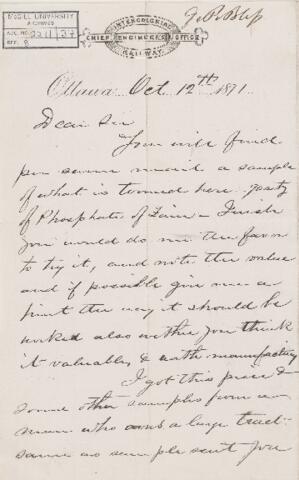 McGILL UNIVERSITY
ARCHIVES
ACC. NO.
REF.
INTERCOLONIAL
CHIEF ENGINEER'S OFFICE
RAILWAY
Ottawa Oct 12th 1871
Dear Sir
You will find
per same mail a sample
of what is termed here
of Phosphate of Lime - I wish
you would do me the favor
to try it, and note the value
and if possible give me a
hint the way it should be
worked also wether you think
it valuable & worth manufacturing
I got this piece &
some other samples from a
man who owns a large tract
same as sample sent you